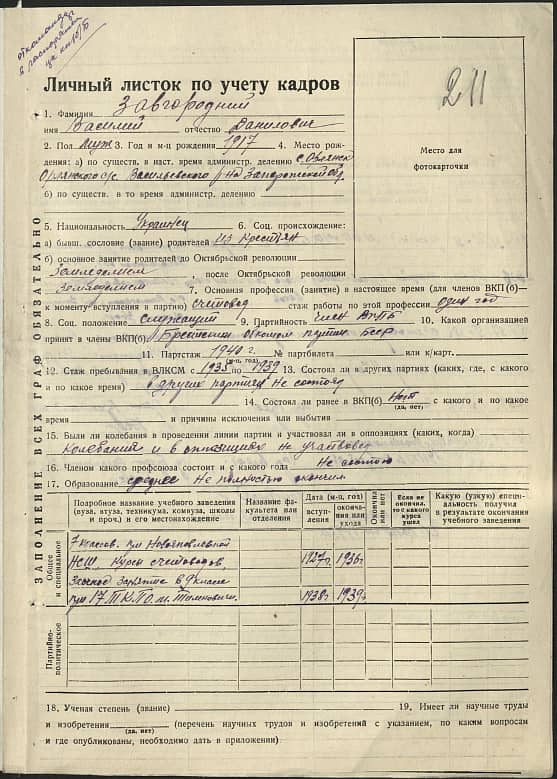 откомандир.
в распоряж.
цк кп(б)Б
211
Личный листок по учету кадров
Место для
фотокарточки
ЗАПОЛНЕНИЕ ВСЕХ ГРАФ ОБЯЗАТЕЛЬНО
1. Фамилия Завгородний
имя Василий отчество Данилович
2. Пол муж 3. Год и м-ц рождения 1917 4. Место рож-
дения: а) по существ. в наст. время администр. делению
Орлянского с/с. Васильевского р-на Запорожской обл
б) по существ. в то время администр. делению
5. Национальность Украинец 6. Соц. происхождение:
а) бывш. сословие (звание) родителей из крестьян
б) основное занятие родителей до Октябрьской революции
Земледелием, после Октябрьской революции
Земледелием 7. Основная профессия (занятие) в настоящее время (для членов ВКП(б)—
к моменту вступления в партию) счетовод стаж работы по этой профессии один год
8. Соц. положение служащий 9. Партийность член ВКПБ 10. Какой организацией
принят в члены ВКП(б) Брестским обкомом партии БССР
11. Партстаж 1940 г. (м-ц, год) № партбилета или к/карт.
12. Стаж пребывания в ВЛКСМ с 1933 по 1939 13. Состоял ли в других партиях (каких, где, с какого
и по какое время) в других партиях не состоял
14. Состоял ли ранее в ВКП(б) Нет (да, нет) с какого и по какое
время и причины исключения или выбытия
15. Были ли колебания в проведении линии партии и участвовал ли в оппозициях (каких, когда)
Колебаний и в оппозициях не участвовал
16. Членом какого профсоюза состоит и с какого года Не состою
17. Образование среднее Не полностью окончил
Подробное название учебного заведения (вуза, втуза, техникума, комвуза, школы и проч.) и его местонахождение
Название факультета или отделения
Дата (м-ц, год)
вступления
окончания или ухода
Окончил или нет
Если не окончил, то с какого курса ушел
Какую (узкую) специальность получил в результате окончания учебного заведения
Общее и специальное
7 классов. при
НСШ, Курсы счетоводов, 1927г. 1936г
9 класс
при 17 1938г 1939г
Партийно-политическое
18. Ученая степень (звание) 19. Имеет ли научные труды
и изобретения (да, нет) (перечень научных трудов и изобретений с указанием, по каким вопросам
и где опубликованы, необходимо дать в приложении).